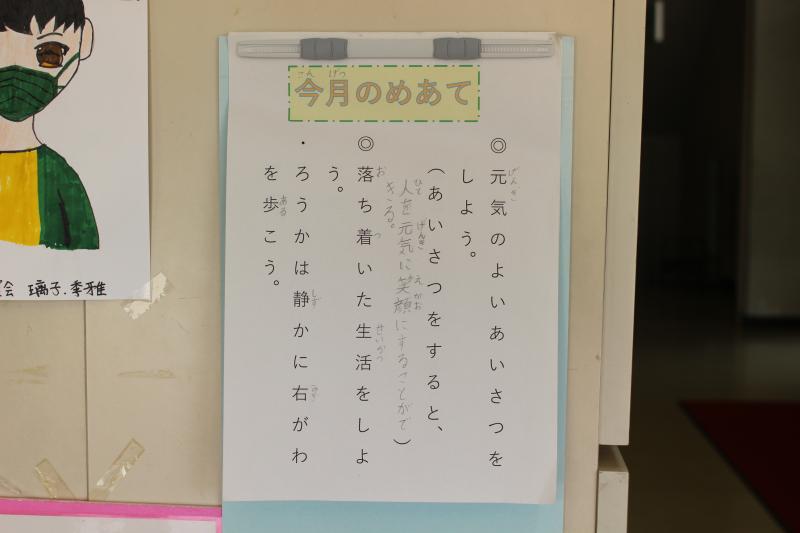 今月のめあて
◎元気のよいあいさつを
しよう。
(あいさつをすると、
人を元気に笑顔にすることがで
きる。)
◎落ち着いた生活をしよ
う。
・ろうかは静かに右がわ
を歩こう。
璃子.李雅